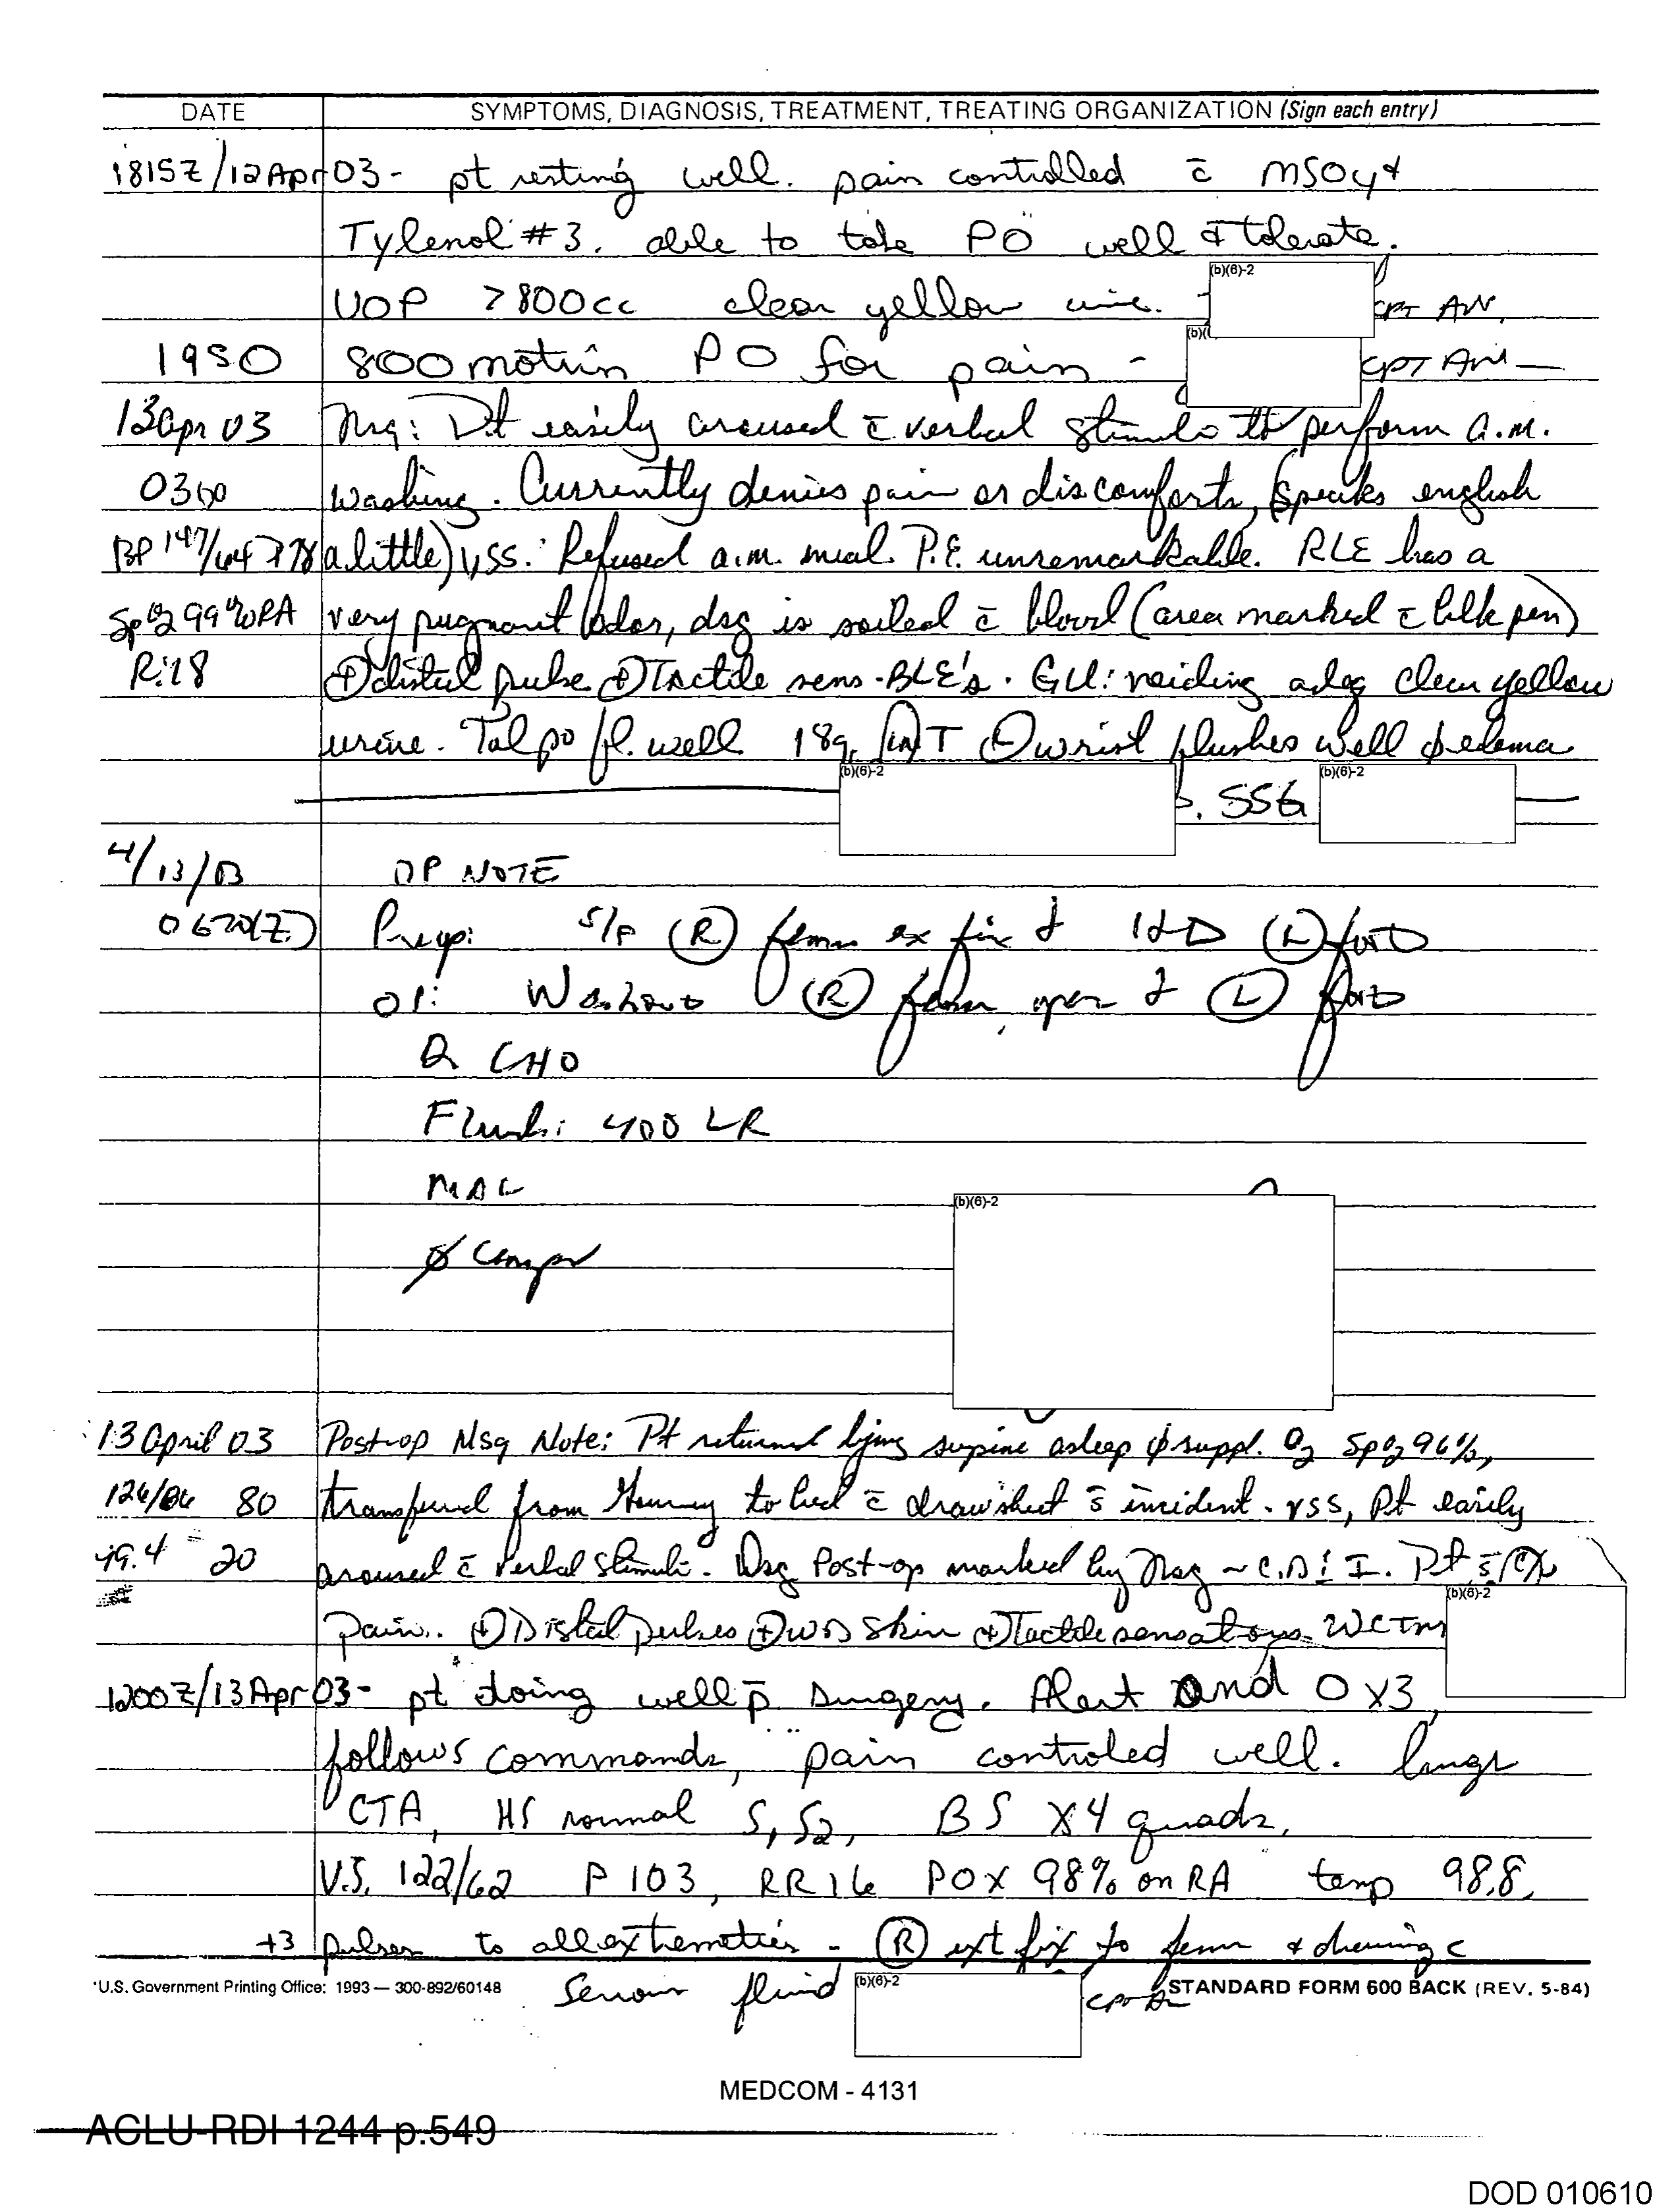 DATE SYMPTOMS, DIAGNOSIS, TREATMENT, TREATING ORGANIZATION (Sign each entry)
1815Z/12Apr03- pt resting well. pain controlled c̄ MSO4 &
Tylenol #3. able to take PO well & tolerate.
(b)(6)-2
UOP >800cc clear yellow CPT AN.
(b)(
1950 800 motrin PO for pain - CPT AN
13 Apr 03 Nsg: Pt easily aroused c̄ verbal to perform a.m.
washing. Currently denies pain or discomforts, (speaks english
BP 147/64 P78 a little) VSS. Refused a.m. meal. P.E. unremarkable. RLE has a
SpO2 99% RA very pugnant odor, dsg is soiled c̄ blood (area marked c̄ blk pen)
R:18 ⊕distal pulse ⊕Tactile sens. BLE's. GU: voiding adeq clear yellow
urine. Tol po fl. well 18g. INT wrist flushes well ∅edema
(b)(6)-2 SSG (b)(6)-2
4/13/03 OP NOTE
(Z) Preop: S/P (R) femur ex fix & I&D (L) foot
OP: Washout (R) femur, open & (L) foot
CHO
Flush: 400 LR
MAC
(b)(6)-2
∅ Comps
13 April 03 Post-op Nsg Note: Pt returned lying supine asleep ∅ suppl. O2 SpO2 96%,
80 transferred from Gurney to bed c̄ drawsheet s̄ incident. VSS, Pt easily
99.4 20 aroused c̄ verbal stimuli. Dsg Post-op marked by Nsg ~ C.D.&I. Pt s̄ C/o
(b)(6)-2
pain.. ⊕Distal pulses ⊕W&D Skin ⊕Tactile sensations. WCTM
1200Z/13Apr03- pt doing well p̄ surgery. Alert and O x3,
follows commands, pain controled well. lungs
CTA, HS normal S1S2, BS x4 quads,
V.S. 122/62 P 103, RR16 POX 98% on RA temp 98.8,
+3 pulses to all extremeties - (R) ext fix to femur & dressing c
*U.S. Government Printing Office: 1993 — 300-892/60148 Serous fluid (b)(6)-2 STANDARD FORM 600 BACK (REV. 5-84)
MEDCOM - 4131
ACLU-RDI 1244 p.549
DOD 010610